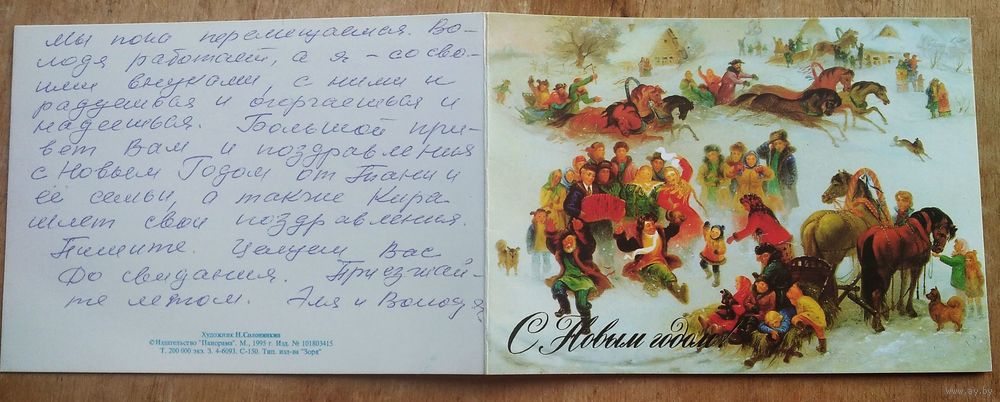 Мы пока перемещаемся. Во-
лодя работает, а я – со сво-
ими внуками, с ними и
радуешься и огорчаешься и
надеешься. Большой при-
вет Вам и поздравления
с Новым Годом от Тани и
её семьи, а также Кира
шлет свои поздравления.
Пишите. Целуем Вас
До свидания. Приезжай-
те летом. Эля и Володя.
Художник Н.Соломихин
©Издательство "Панорама". М., 1995 г. Изд. № 101803415
Т. 200 000 экз. З. 4-6093. С-150. Тип. изд-ва "Заря"
С Новым годом!
www.ay.by